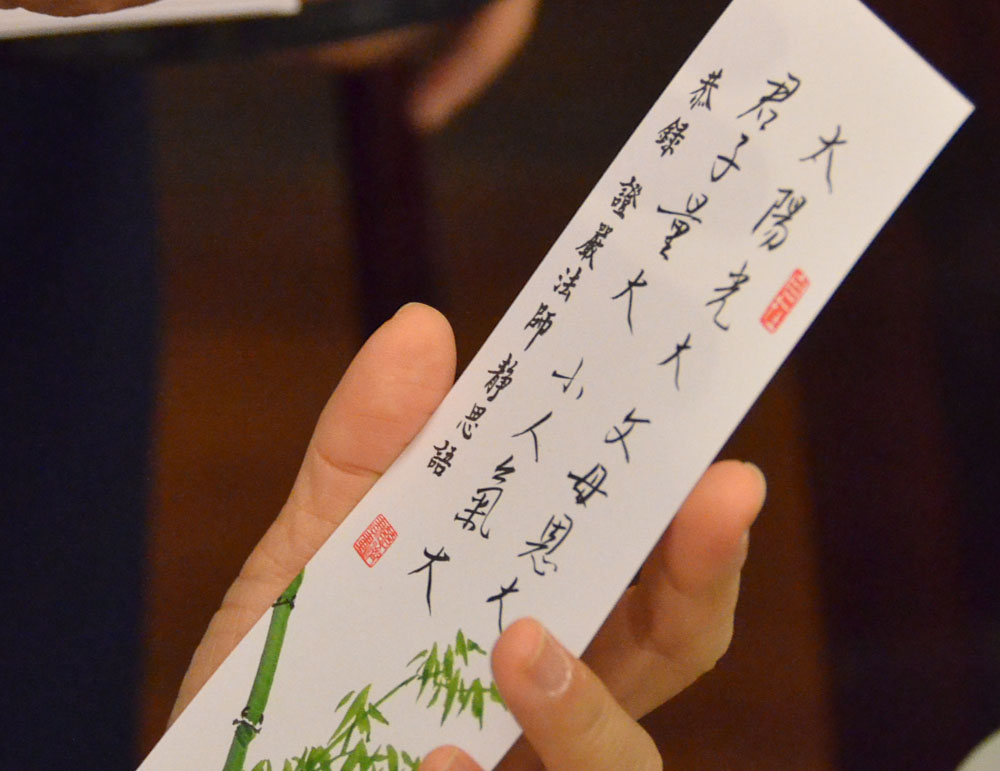 太陽光大 父母恩大
君子量大 小人氣大
恭錄 證嚴法師靜思語